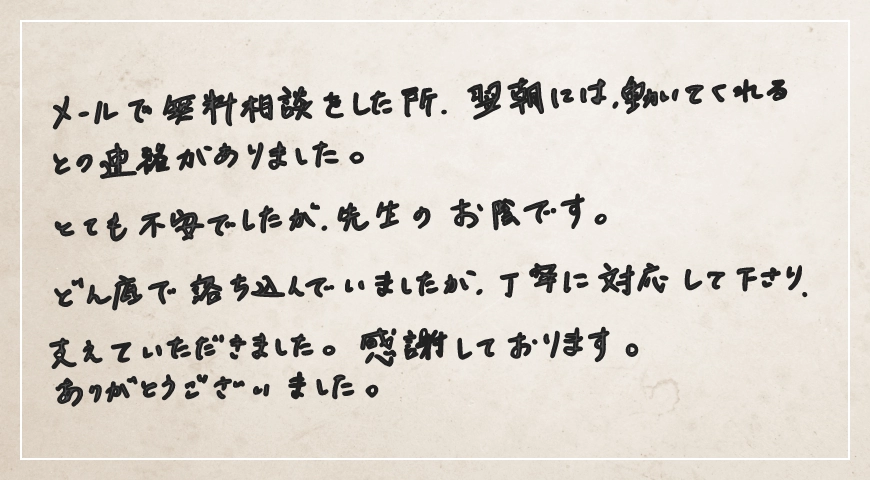 メールで無料相談をした所、翌朝には、動いてくれる
との連絡がありました。
とても不安でしたが、先生のお陰です。
どん底で落ち込んでいましたが、丁寧に対応して下さり、
支えていただきました。感謝しております。
ありがとうございました。